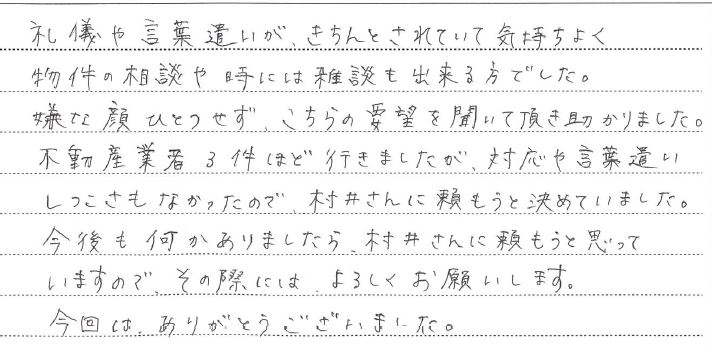 礼儀や言葉遣いが、きちんとされていて気持ちよく
物件の相談や時には雑談も出来る方でした。
嫌な顔ひとつせず、こちらの要望を聞いて頂き助かりました。
不動産業者3件ほど行きましたが、対応や言葉遣い
しつこさもなかったので、村井さんに頼もうと決めていました。
今後も何かありましたら、村井さんに頼もうと思って
いますので、その際には、よろしくお願いします。
今回は、ありがとうございました。